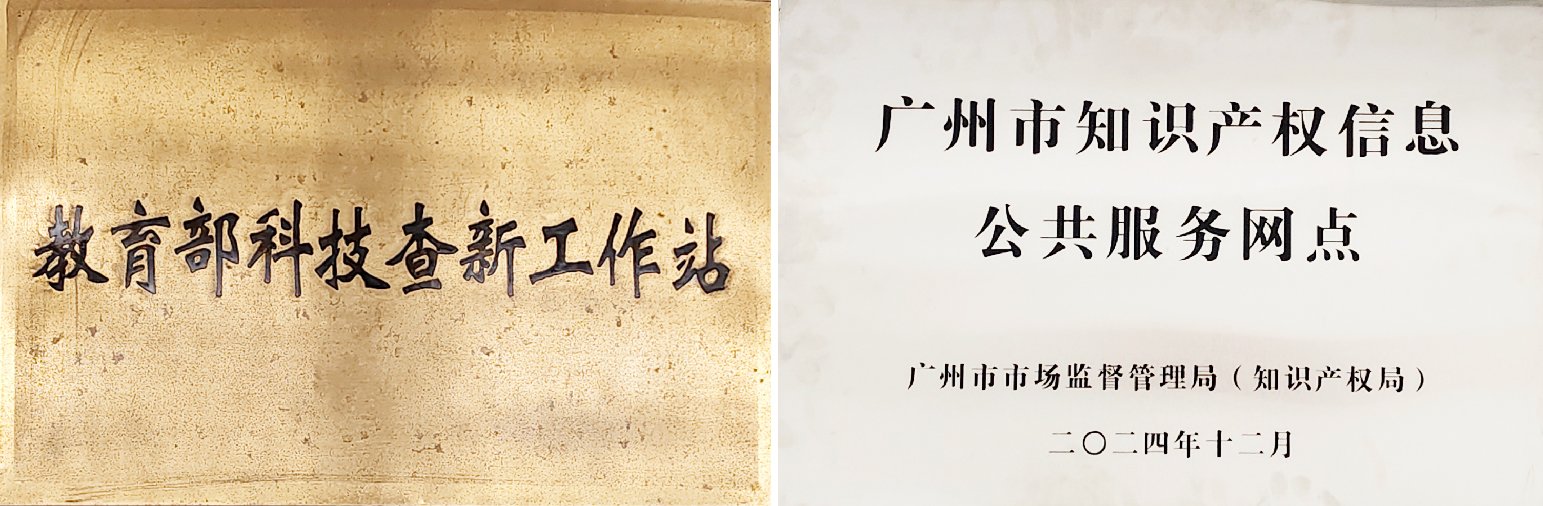 教育部科技查新工作站
广州市知识产权信息
公共服务网点
广州市市场监督管理局（知识产权局）
二〇二四年十二月